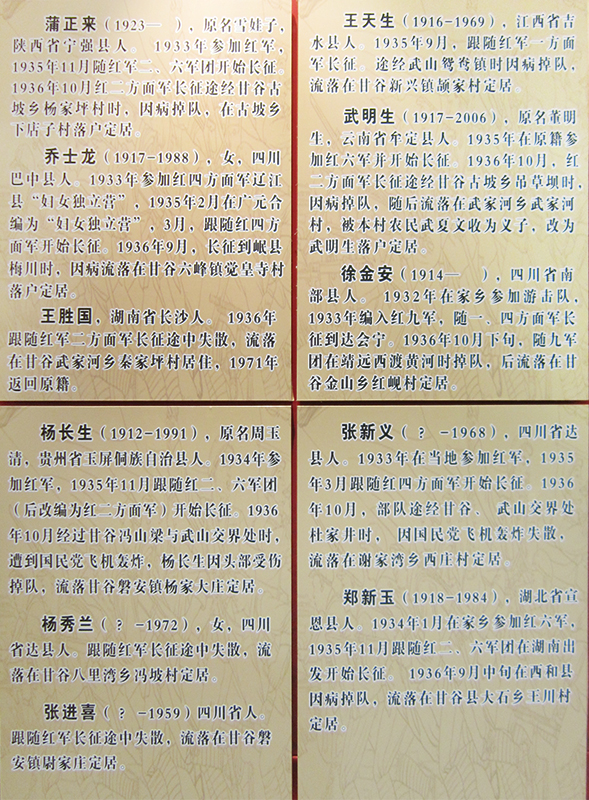 蒲正来（1923—　），原名雪娃子，
陕西省宁强县人。 1933年参加红军，
1935年11月随红军二、六军团开始长征。
1936年10月红二方面军长征途经甘谷古
坡乡杨家坪村时，因病掉队，在古坡乡
下店子村落户定居。
乔士龙（1917-1988），女，四川
巴中县人。1933年参加红四方面军辽江
县“妇女独立营”，1935年2月在广元合
编为“妇女独立营”，3月，跟随红四方
面军开始长征。1936年9月，长征到岷县
梅川时，因病流落在甘谷六峰镇觉皇寺村
落户定居。
王胜国，湖南省长沙人。 1936年
跟随红军二方面军长征途中失散，流落
在甘谷武家河乡秦家坪村居住，1971年
返回原籍。
王天生（1916-1969），江西省吉
水县人。1935年9月，跟随红军一方面
军长征。途经武山鸳鸯镇时因病掉队，
流落在甘谷新兴镇颉家村定居。
武明生（1917-2006），原名董明
生，云南省牟定县人。1935年在原籍参
加红六军并开始长征。1936年10月，红
二方面军长征途经甘谷古坡乡吊草坝时，
因病掉队，随后流落在武家河乡武家河
村，被本村农民武夏文收为义子，改为
武明生落户定居。
徐金安（1914—　），四川省南
部县人。 1932年在家乡参加游击队，
1933年编入红九军，随一、四方面军长
征到达会宁。1936年10月下旬，随九军
团在靖远西渡黄河时掉队，后流落在甘
谷金山乡红岘村定居。
杨长生（1912-1991），原名周玉
清，贵州省玉屏侗族自治县人。1934年参
加红军，1935年11月跟随红二、六军团
（后改编为红二方面军）开始长征。1936
年10月经过甘谷冯山梁与武山交界处时，
遭到国民党飞机轰炸，杨长生因头部受伤
掉队，流落甘谷磐安镇杨家大庄定居。
杨秀兰（？-1972），女，四川
省达县人。跟随红军长征途中失散，流
落在甘谷八里湾乡冯坡村定居。
张进喜（？-1959）四川省人。
跟随红军长征途中失散，流落在甘谷磐
安镇尉家庄定居。
张新义（？-1968），四川省达
县人。1933年在当地参加红军，1935
年3月跟随红四方面军开始长征。1936
年10月，部队途经甘谷、武山交界处
杜家井时， 因国民党飞机轰炸失散，
流落在谢家湾乡西庄村定居。
郑新玉（1918-1984），湖北省宣
恩县人。1934年1月在家乡参加红六军，
1935年11月跟随红二、六军团在湖南出
发开始长征。 1936年9月中旬在西和县
因病掉队，流落在甘谷县大石乡王川村
定居。